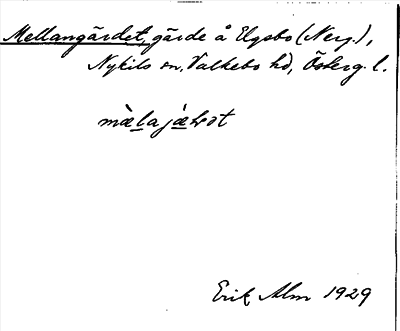 Mellangärdet, gärde å Elgsbo (Nerg.),
Nykils sn, Valkebo hd, Österg. l.
Erik Alm 1929